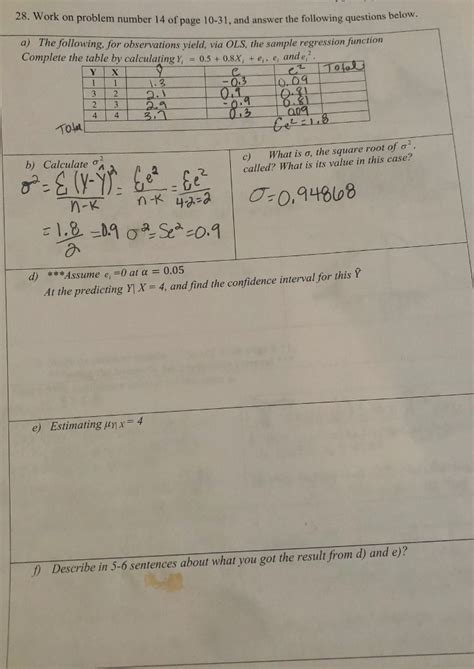 28. Work on problem number 14 of page 10-31, and answer the following questions below.
a) The following, for observations yield, via OLS, the sample regression function
Complete the table by calculating Yᵢ = 0.5 + 0.8Xᵢ + eᵢ, eᵢ and eᵢ².
Y X Ŷ e e² Total
1 1 1.3 -0.3 0.09
3 2 2.1 0.9 0.81
2 3 2.9 -0.9 0.81
4 4 3.7 0.3 0.09
Total Σe²=1.8
b) Calculate σ²
σ² = Σ(Y-Ŷ)² / n-K = Σe² / n-K = Σe² / 4-2=2
= 1.8 / 2 = 0.9 σ² = Se² = 0.9
c) What is σ, the square root of σ²,
called? What is its value in this case?
σ=0.94868
d) ***Assume eᵢ =0 at α = 0.05
At the predicting Y| X = 4, and find the confidence interval for this Ŷ
e) Estimating μY| X = 4
f) Describe in 5-6 sentences about what you got the result from d) and e)?